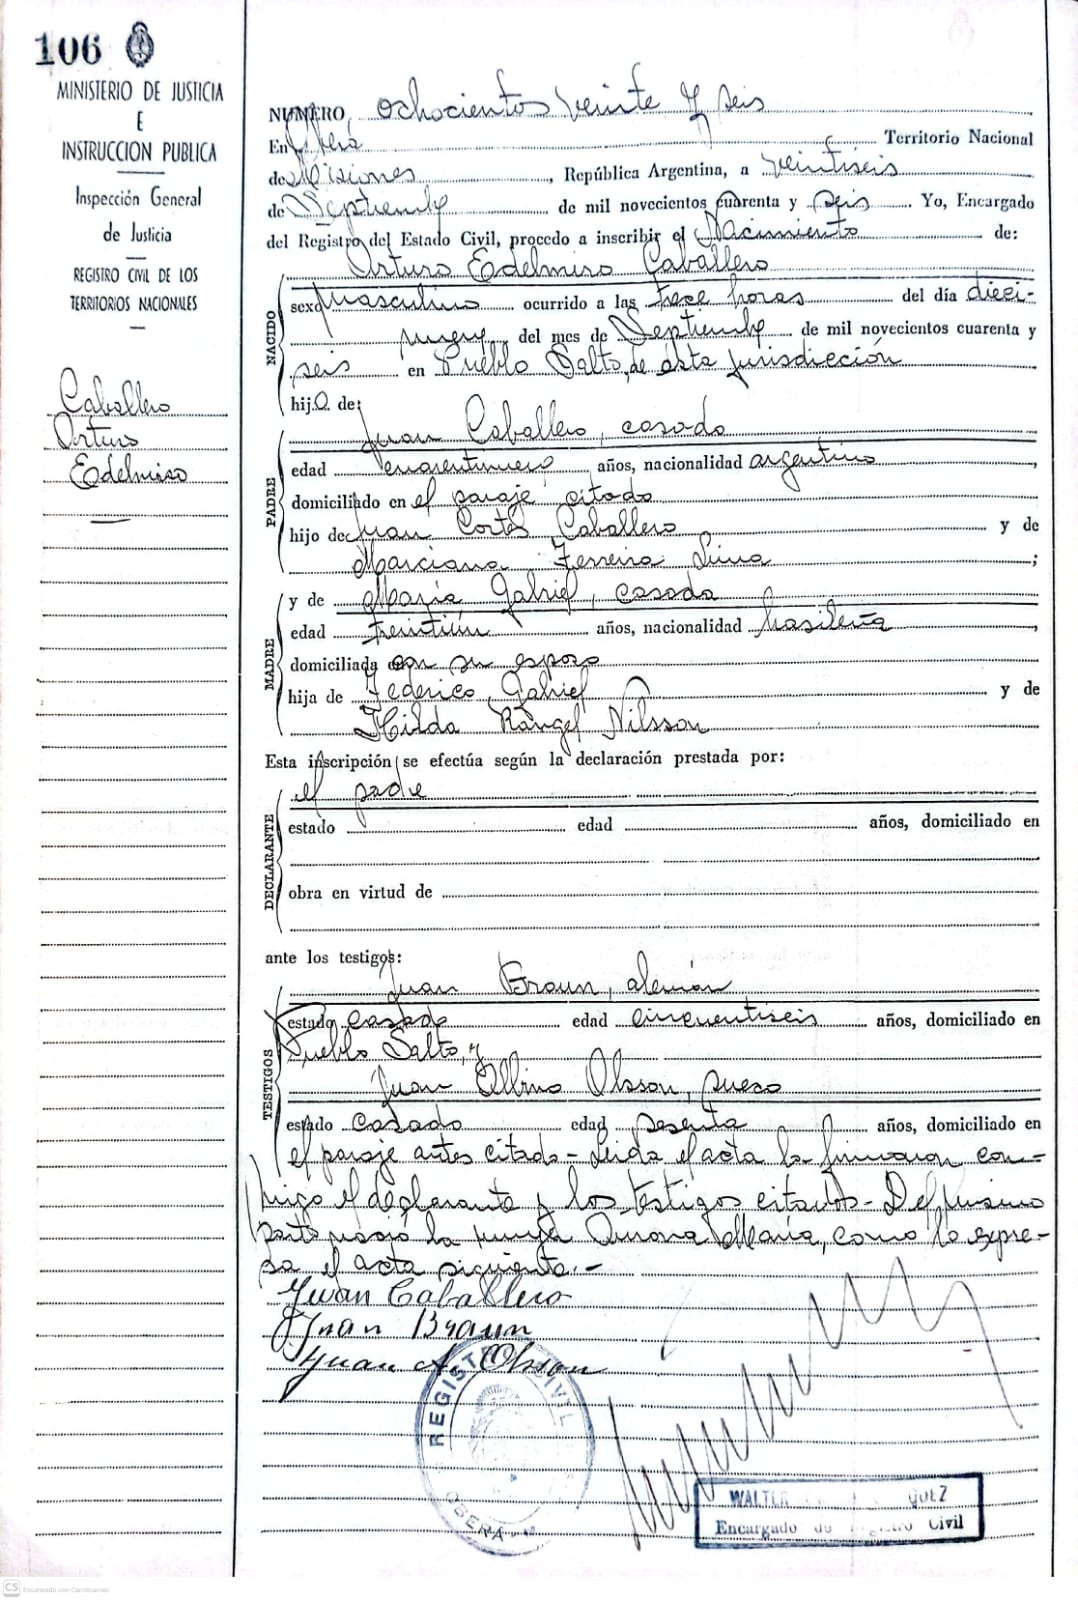 106
MINISTERIO DE JUSTICIA
E
INSTRUCCION PUBLICA
Inspección General
de Justicia
REGISTRO CIVIL DE LOS
TERRITORIOS NACIONALES
Caballero
Arturo
Edelmiro
NUMERO Ochocientos veinte y seis
En Oberá Territorio Nacional
de Misiones, República Argentina, a veintiseis
de Septiembre de mil novecientos cuarenta y seis Yo, Encargado
del Registro del Estado Civil, procedo a inscribir el Nacimiento de:
Arturo Edelmiro Caballero
NACIDO
sexo Masculino ocurrido a las trece horas del día dieci-
nueve del mes de Septiembre de mil novecientos cuarenta y
seis en Pueblo Salto, de esta jurisdicción
hijo de:
Juan Caballero, casado
PADRE
edad cuarentinueve años, nacionalidad argentino,
domiciliado en el paraje citado
hijo de Juan Cortés Caballero y de
Marciana Ferreira Lima;
y de María Gabriel, casada
MADRE
edad treintiún años, nacionalidad brasileña,
domiciliada con su esposo
hija de Federico Gabriel y de
Hilda Rangel Nilsson
Esta inscripción se efectúa según la declaración prestada por:
el padre
DECLARANTE
estado edad años, domiciliado en
obra en virtud de
ante los testigos:
Juan Braun, alemán
TESTIGOS
estado casado edad cincuentiseis años, domiciliado en
Pueblo Salto, y
Juan Albino Olsson, sueco
estado casado edad sesenta años, domiciliado en
el paraje antes citado - Leida el acta la firmaron con-
migo el declarante y los testigos citados - Del mismo
parto nació la mujer Aurora María, como lo expre-
sa el acta siguiente.-
Juan Caballero
Juan Braun
Juan A. Olsson
REGISTRO CIVIL
OBERA
WALTER
Encargado de Registro Civil
CS Escaneado con CamScanner